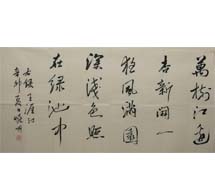 萬樹江邊
杏新開一
夜風滿園
深淺色照
在綠池中
右錄王涯
辛卯